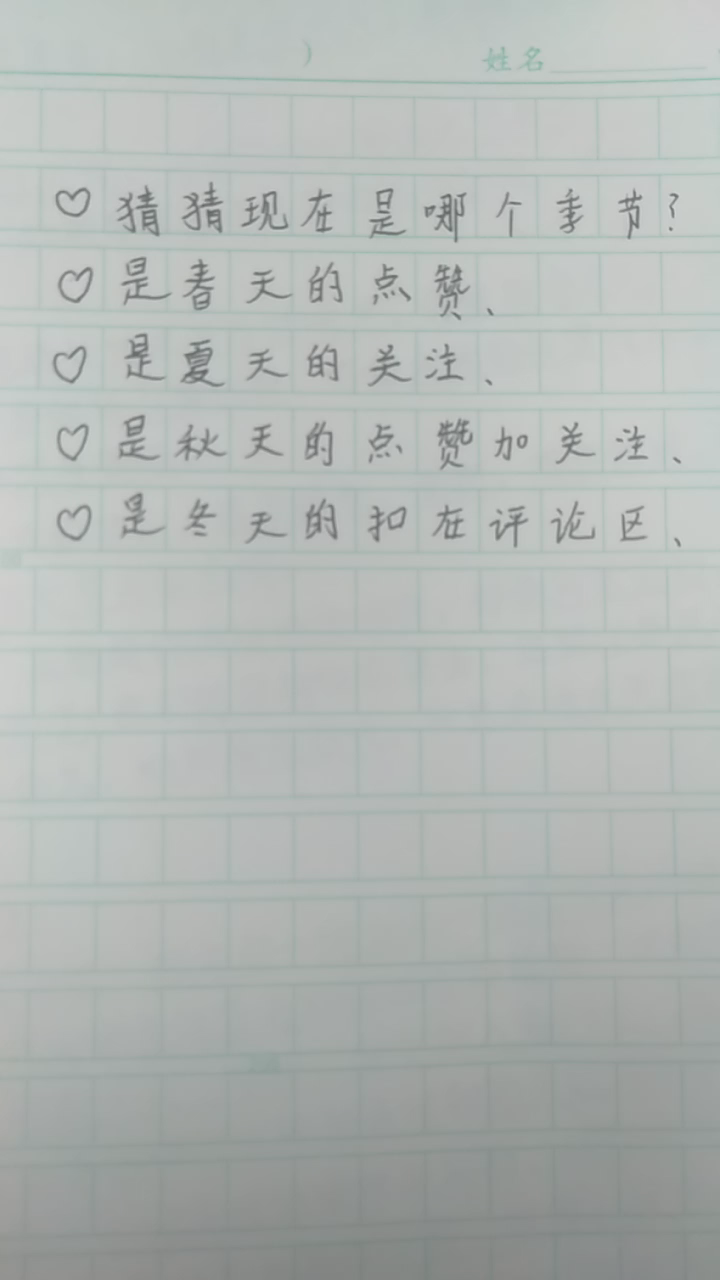 ) 姓名
♡ 猜猜现在是哪个季节?
♡ 是春天的点赞、
♡ 是夏天的关注、
♡ 是秋天的点赞加关注、
♡ 是冬天的扣在评论区、